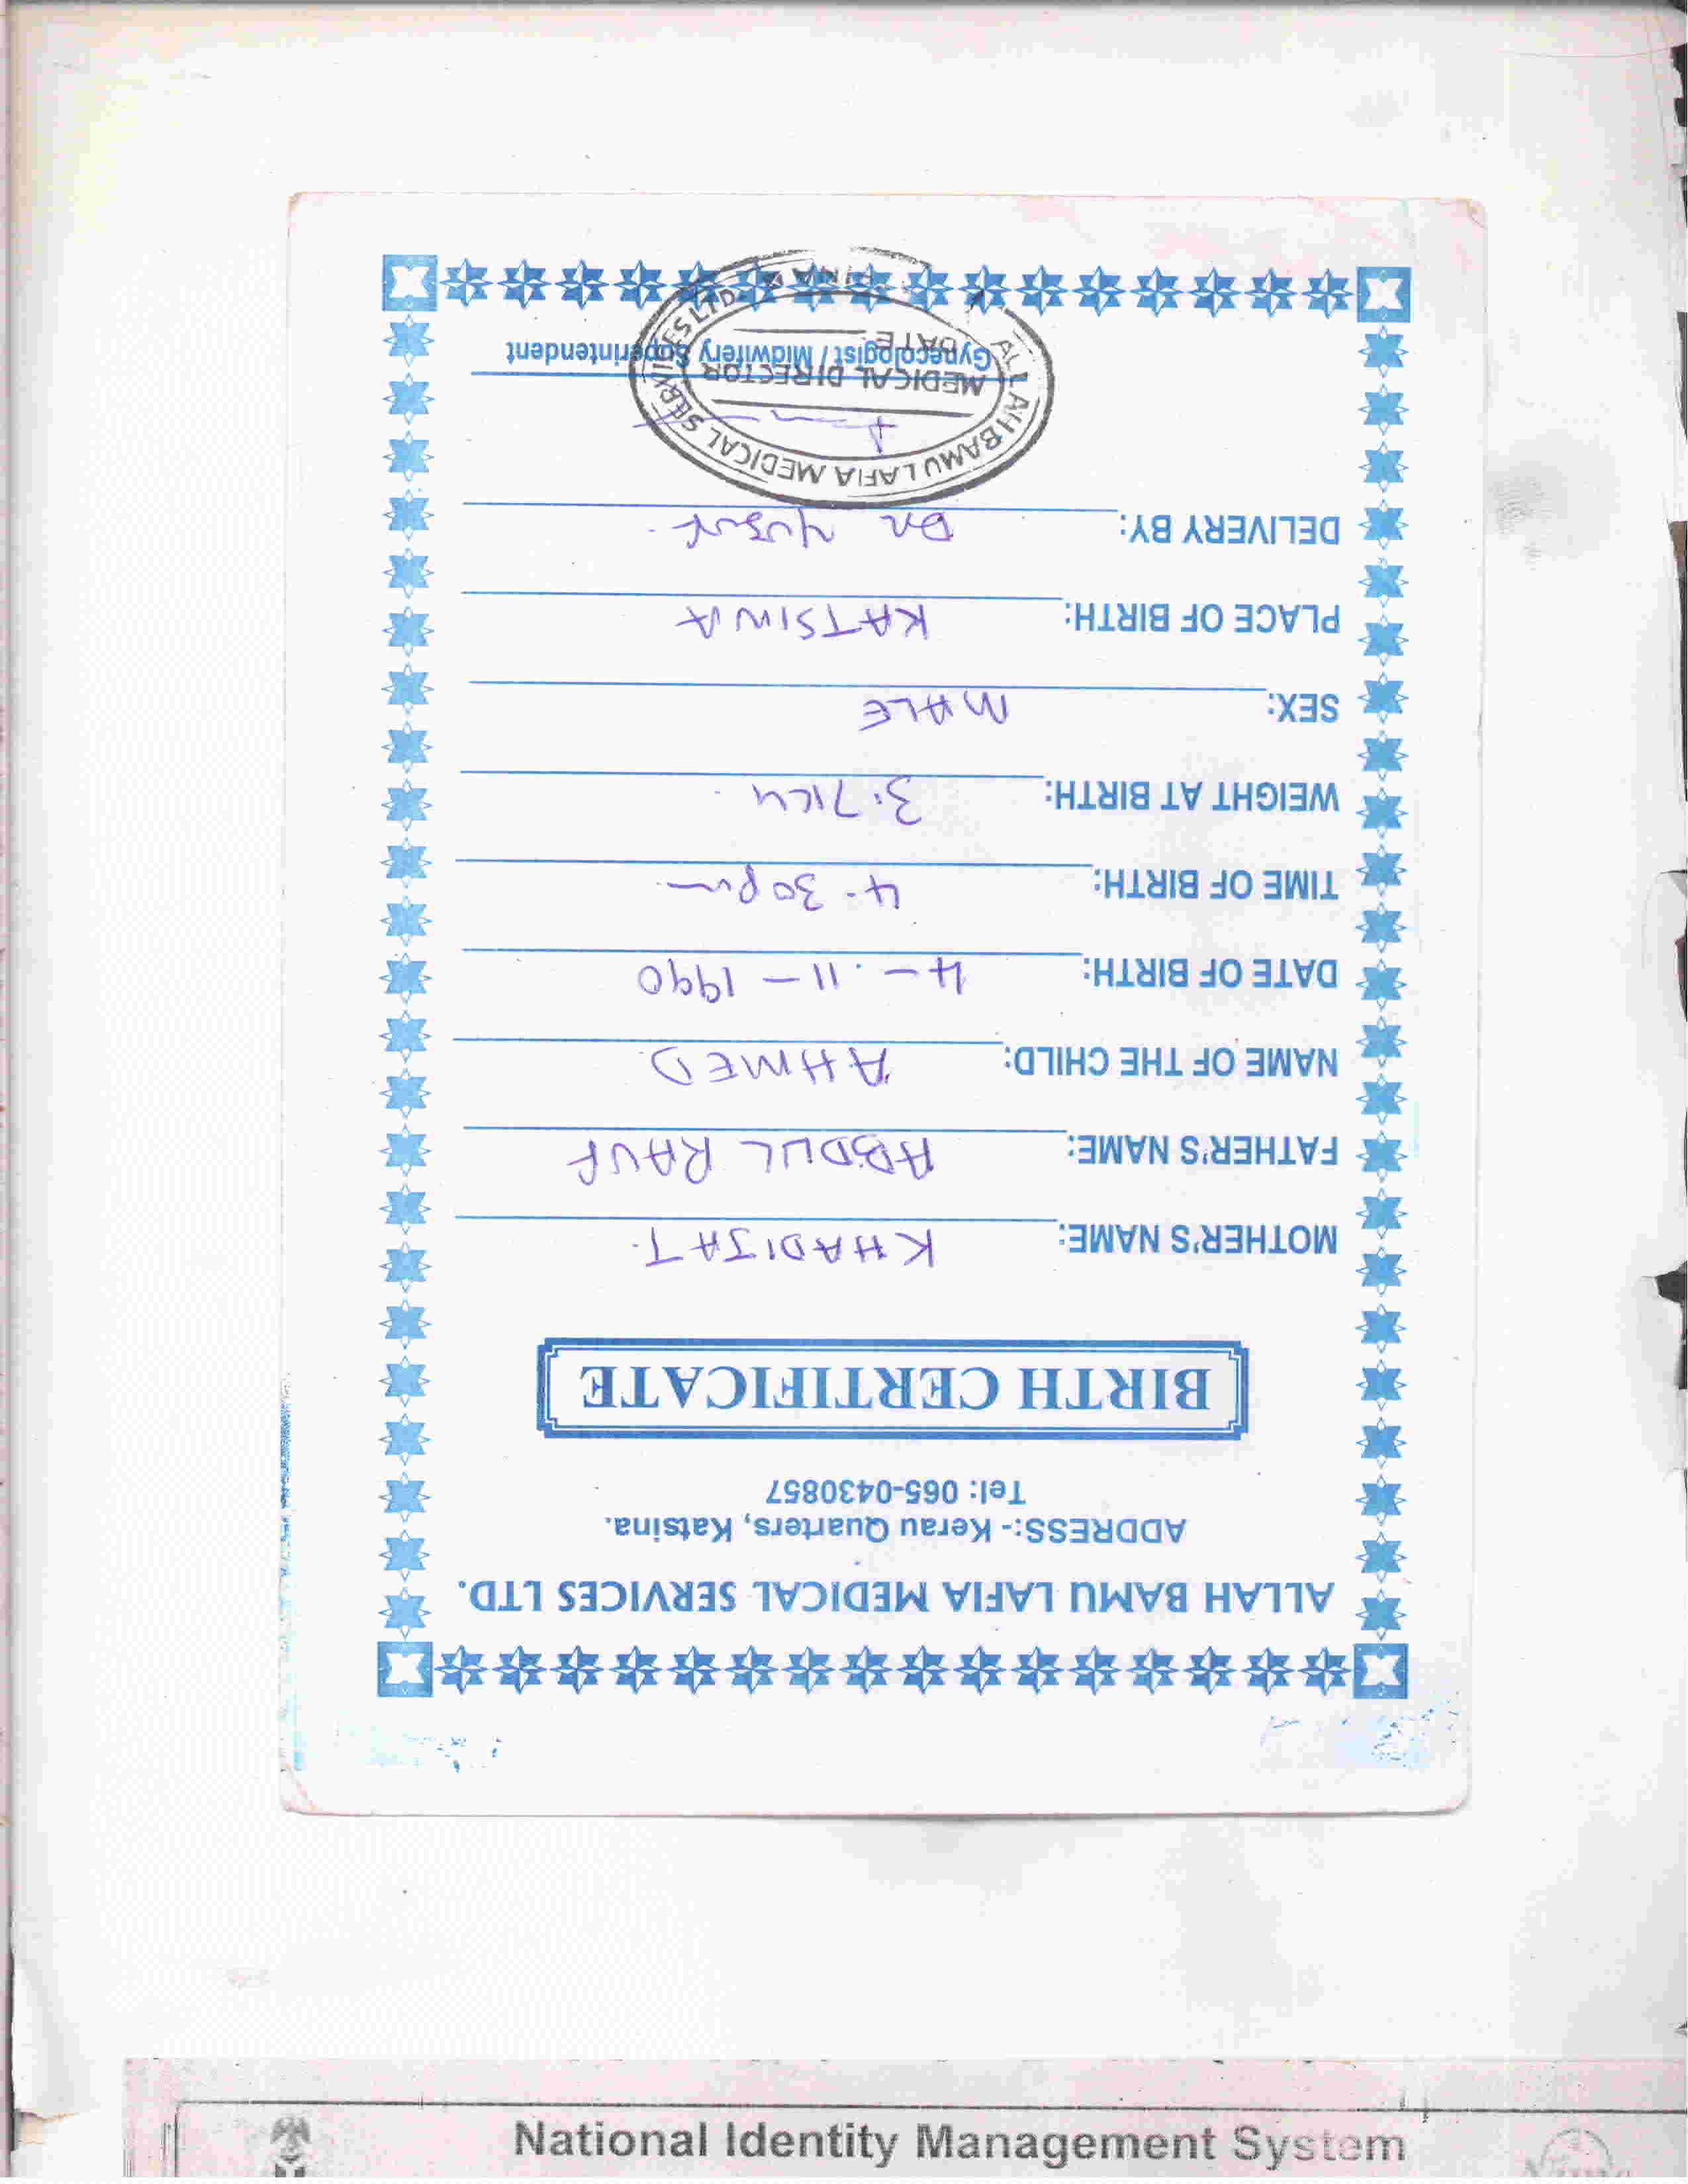 ALLAH BAMU LAFIA MEDICAL SERVICES LTD.
ADDRESS:- Kerau Quarters, Katsina.
Tel: 065-0430857
BIRTH CERTIFICATE
MOTHER'S NAME: KHADIJAT.
FATHER'S NAME: ABDUL RAUF
NAME OF THE CHILD: AHMED
DATE OF BIRTH: 4-.11-1990
TIME OF BIRTH: 4-30pm
WEIGHT AT BIRTH: 3.7
SEX: MALE
PLACE OF BIRTH: KATSINA
DELIVERY BY: DR Yusuf.
ALLAH BAMU LAFIA MEDICAL SERVICES LTD
MEDICAL DIRECTOR
DATE
Gynecologist / Midwifery Superintendent
National Identity Management System